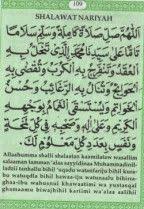 109
SHALAWAT NARIYAH
اَللّٰهُمَّ صَلِّ صَلَاةً كَامِلَةً وَسَلِّمْ سَلَامًا
تَامًّا عَلَى سَيِّدِنَا مُحَمَّدٍ الَّذِي تَنْحَلُّ بِهِ
الْعُقَدُ وَتَنْفَرِجُ بِهِ الْكُرَبُ وَتُقْضَى بِهِ
الْحَوَائِجُ وَتُنَالُ بِهِ الرَّغَائِبُ وَحُسْنُ
الْخَوَاتِمِ وَيُسْتَسْقَى الْغَمَامُ بِوَجْهِهِ
الْكَرِيْمِ وَعَلَى آلِهِ وَصَحْبِهِ فِي كُلِّ لَمْحَةٍ
وَنَفَسٍ بِعَدَدِ كُلِّ مَعْلُوْمٍ لَكَ.
Allaahumma shalli shalaatan kaamilataw wasallim
salaaman taamman 'alaa sayyidinaa Muhammadinil-
ladzii tanhallu bihil 'uqadu watanfariju bihil kura-
bu watuqdla bihil hawaa-iju watunaalu bihir-
ghaa-ibu wahusnul khawaatimi wa yustasqal
ghamaamu biwajhihil kariimi wa'alaa aalihii